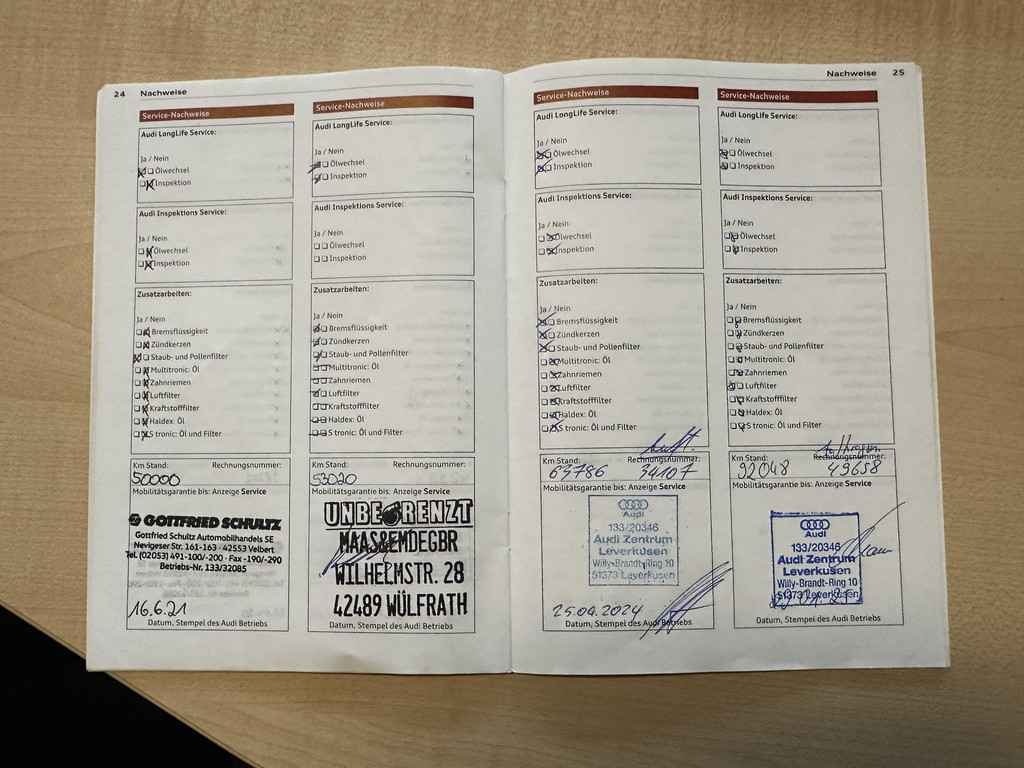 24 Nachweise
Service-Nachweise
Audi LongLife Service:
Ja / Nein
Ölwechsel
Inspektion
Audi Inspektions Service:
Ja / Nein
Ölwechsel
Inspektion
Zusatzarbeiten:
Ja / Nein
Bremsflüssigkeit
Zündkerzen
Staub- und Pollenfilter
Multitronic: Öl
Zahnriemen
Luftfilter
Kraftstofffilter
Haldex: Öl
S tronic: Öl und Filter
Km Stand: Rechnungsnummer:
50000
Mobilitätsgarantie bis: Anzeige Service
GOTTFRIED SCHULTZ
Gottfried Schultz Automobilhandels SE
Nevigeser Str. 161-163 · 42553 Velbert
Tel. (02053) 491-100/-200 · Fax -190/-290
Betriebs-Nr. 133/32085
16.6.21
Datum, Stempel des Audi Betriebs
Service-Nachweise
Audi LongLife Service:
Ja / Nein
Ölwechsel
Inspektion
Audi Inspektions Service:
Ja / Nein
Ölwechsel
Inspektion
Zusatzarbeiten:
Ja / Nein
Bremsflüssigkeit
Zündkerzen
Staub- und Pollenfilter
Multitronic: Öl
Zahnriemen
Luftfilter
Kraftstofffilter
Haldex: Öl
S tronic: Öl und Filter
Km Stand: Rechnungsnummer:
53020
Mobilitätsgarantie bis: Anzeige Service
UNBEGRENZT
MAAS&EMDEGBR
WILHELMSTR. 28
42489 WÜLFRATH
Datum, Stempel des Audi Betriebs
Nachweise 25
Service-Nachweise
Audi LongLife Service:
Ja / Nein
Ölwechsel
Inspektion
Audi Inspektions Service:
Ja / Nein
Ölwechsel
Inspektion
Zusatzarbeiten:
Ja / Nein
Bremsflüssigkeit
Zündkerzen
Staub- und Pollenfilter
Multitronic: Öl
Zahnriemen
Luftfilter
Kraftstofffilter
Haldex: Öl
S tronic: Öl und Filter
Km Stand: Rechnungsnummer:
63786 34107
Mobilitätsgarantie bis: Anzeige Service
Audi
133/20346
Audi Zentrum
Leverkusen
Willy-Brandt-Ring 10
51373 Leverkusen
2024
Datum, Stempel des Audi Betriebs
Service-Nachweise
Audi LongLife Service:
Ja / Nein
Ölwechsel
Inspektion
Audi Inspektions Service:
Ja / Nein
Ölwechsel
Inspektion
Zusatzarbeiten:
Ja / Nein
Bremsflüssigkeit
Zündkerzen
Staub- und Pollenfilter
Multitronic: Öl
Zahnriemen
Luftfilter
Kraftstofffilter
Haldex: Öl
S tronic: Öl und Filter
Km Stand: Rechnungsnummer:
92048 49658
Mobilitätsgarantie bis: Anzeige Service
Audi
133/20346
Audi Zentrum
Leverkusen
Willy-Brandt-Ring 10
51373 Leverkusen
Datum, Stempel des Audi Betriebs